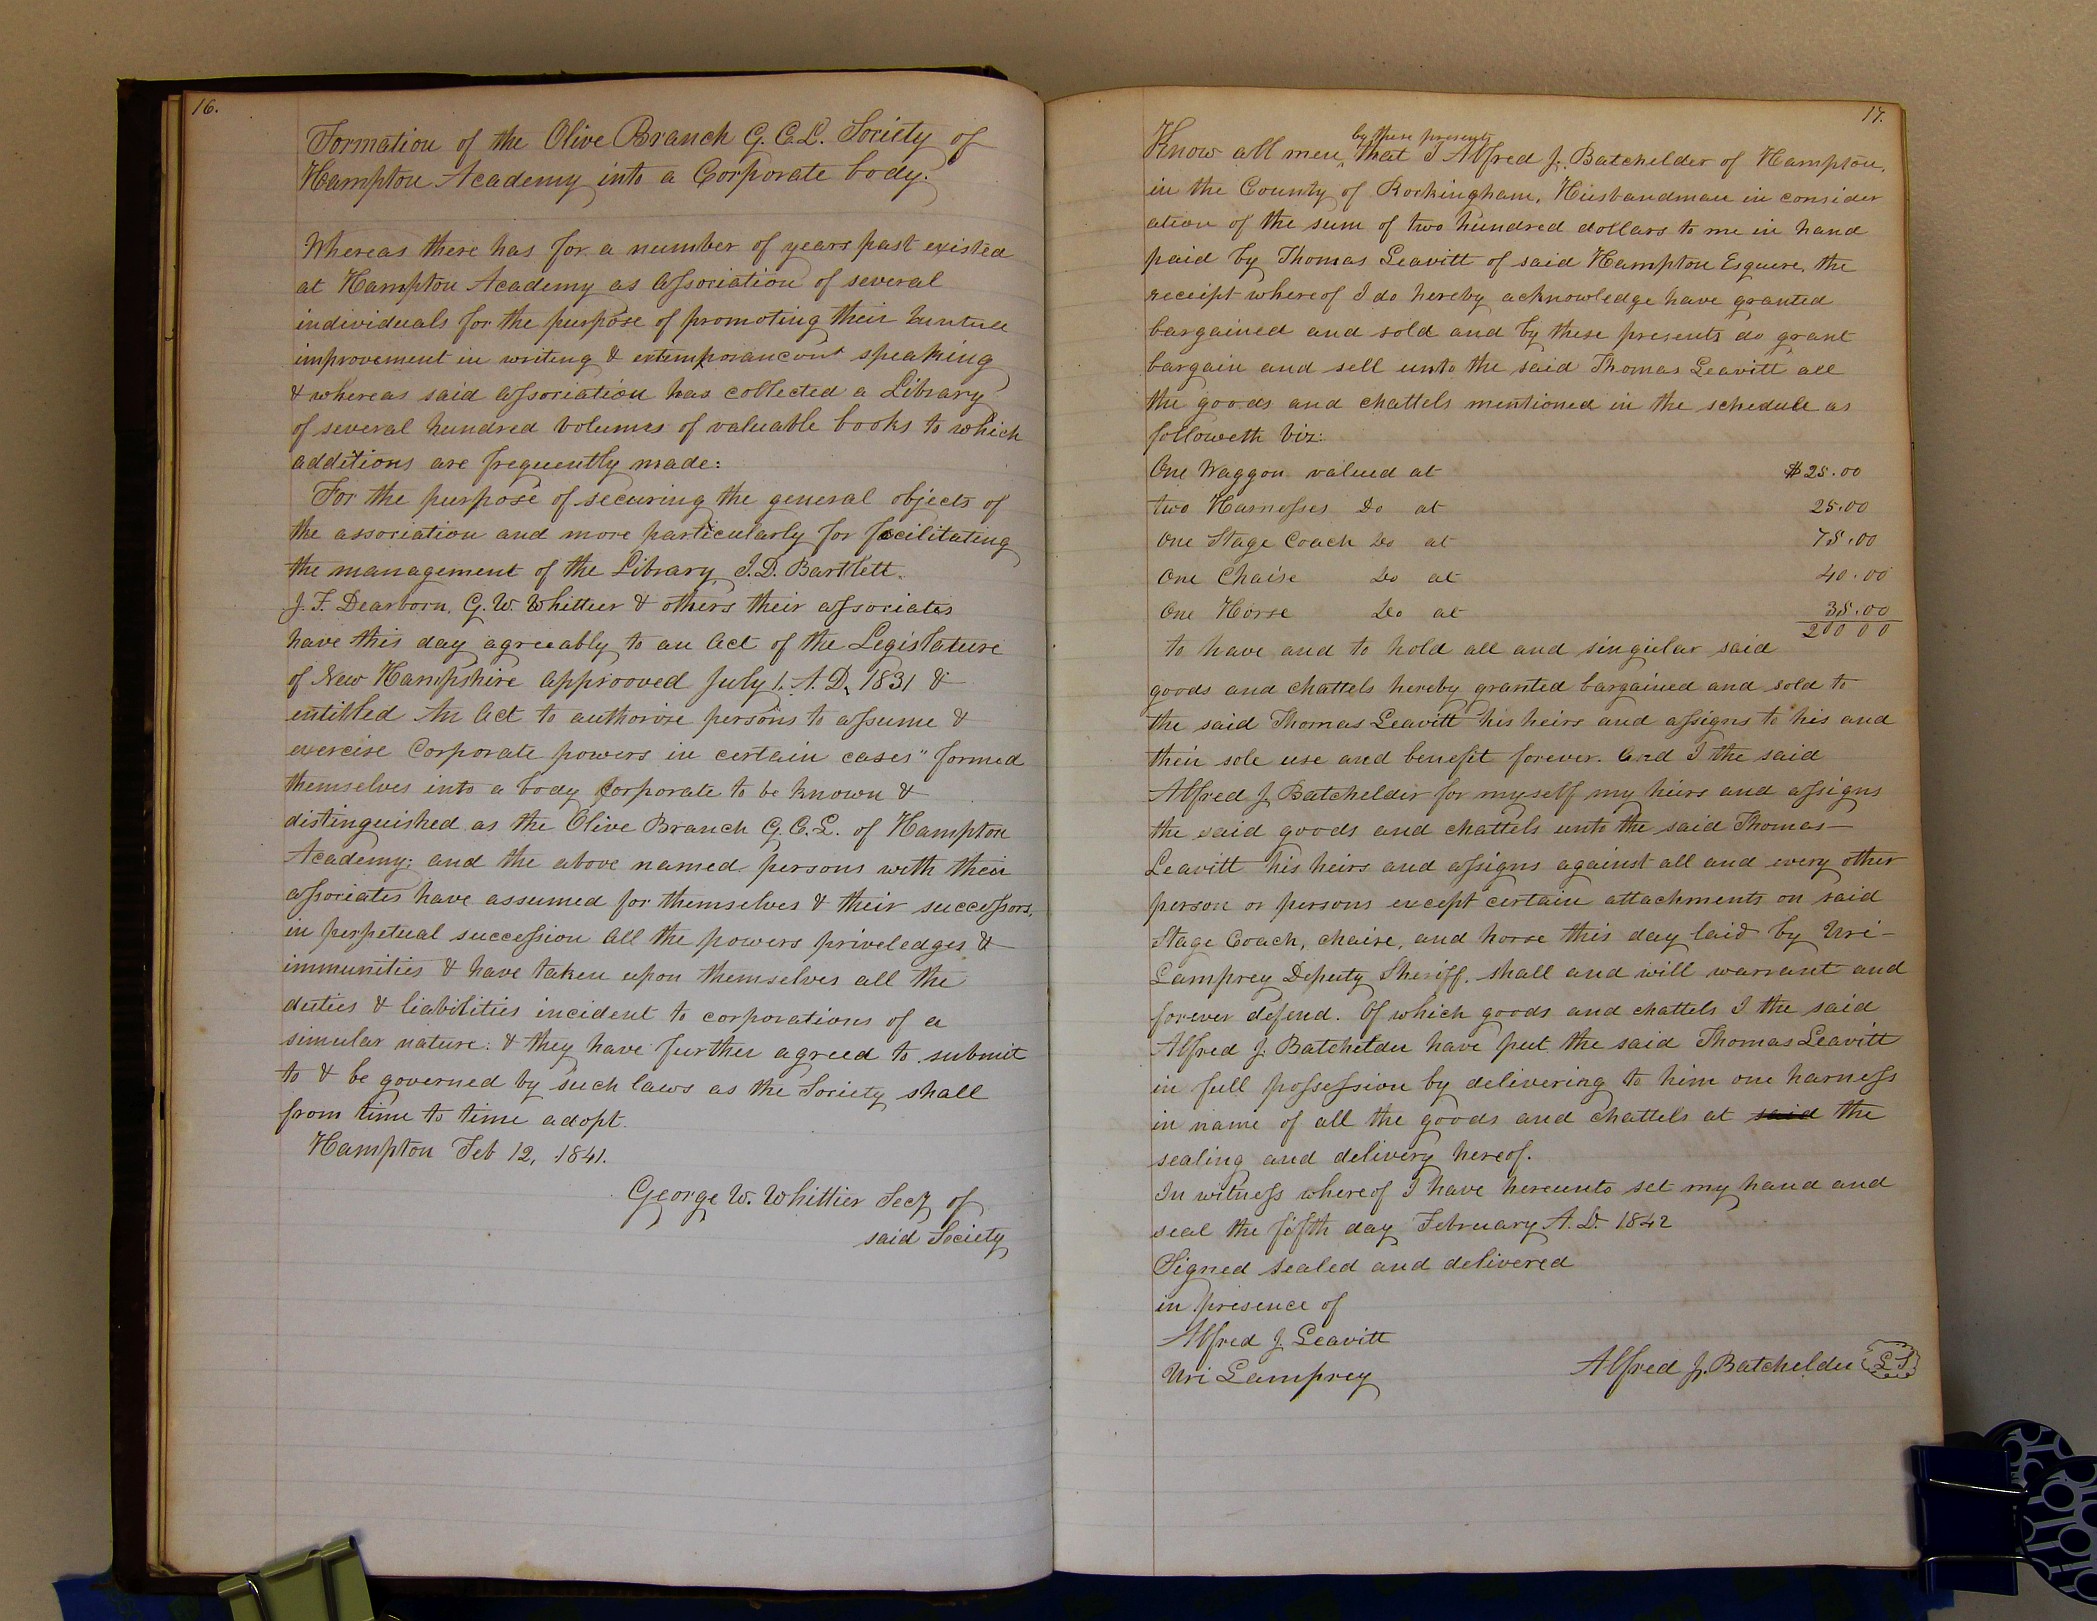 16.
Formation of the Olive Branch G. C. L. Society of
Hampton Academy into a Corporate body.
Whereas there has for a number of years past existed
at Hampton Academy as Association of several
individuals for the purpose of promoting their
improvement in writing & extemporancous speaking
& whereas said association has collected a Library
of several hundred volumes of valuable books to which
additions are frequently made:
For the purpose of securing the general objects of
the association and more particularly for facilitating
the management of the Library J. D. Bartlett.
J. F. Dearborn, G. W. Whittier & others their associates
have this day agreeably to an Act of the Legislature
of New Hampshire approoved July 1. A. D. 1831 &
entitled An Act to authorize persons to assume &
exercise Corporate powers in certain cases" formed
themselves into a body Corporate to be known &
distinguished as the Olive Branch G. C. L. of Hampton
Academy; and the above named persons with their
associates have assumed for themselves & their successors,
in perpetual succession all the powers priveledges &
immunities & have taken upon themselves all the
duties & liabilities incident to corporations of a
simular nature: & they have further agreed to submit
to & be governed by such laws as the Society shall
from time to time adopt.
Hampton Feb 12, 1841.
George W. Whittier Secy of
said Society
17.
by these presents
Know all men, that I Alfred J. Batchelder of Hampton,
in the County of Rockingham, Husbandman in consider
ation of the sum of two hundred dollars to me in hand
paid by Thomas Leavitt of said Hampton Esquere, the
receipt whereof I do hereby acknowledge have granted
bargained and sold and by these presents do grant
bargain and sell unto the said Thomas Leavitt all
the goods and chattels mentioned in the schedule as
followeth viz:
One Waggon valued at $25.00
two Harnesses Do at 25.00
One Stage Coach Do at 75.00
One Chaise Do at 40.00
One Horse Do at 35.00
200 00
to have and to hold all and singular said
goods and chattels hereby granted bargained and sold to
the said Thomas Leavitt his heirs and assigns to his and
their sole use and benefit forever. And I the said
Alfred J. Batchelder for myself my heirs and assigns
the said goods and chattels unto the said Thomas
Leavitt his heirs and assigns against all and every other
person or persons except certain attachments on said
Stage Coach, chaise, and horse this day laid by Uri
Lamprey Deputy Sheriff. shall and will warrant and
forever defend. Of which goods and chattels I the said
Alfred J. Batchelder have put the said Thomas Leavitt
in full possession by delivering to him one harness
in name of all the goods and chattels at said the
sealing and delivery hereof.
In witness whereof I have hereunto set my hand and
seal the fifth day February A. D. 1842
Signed sealed and delivered
in presence of
Alfred J. Leavitt
Uri Lamprey
Alfred J. Batchelder L S